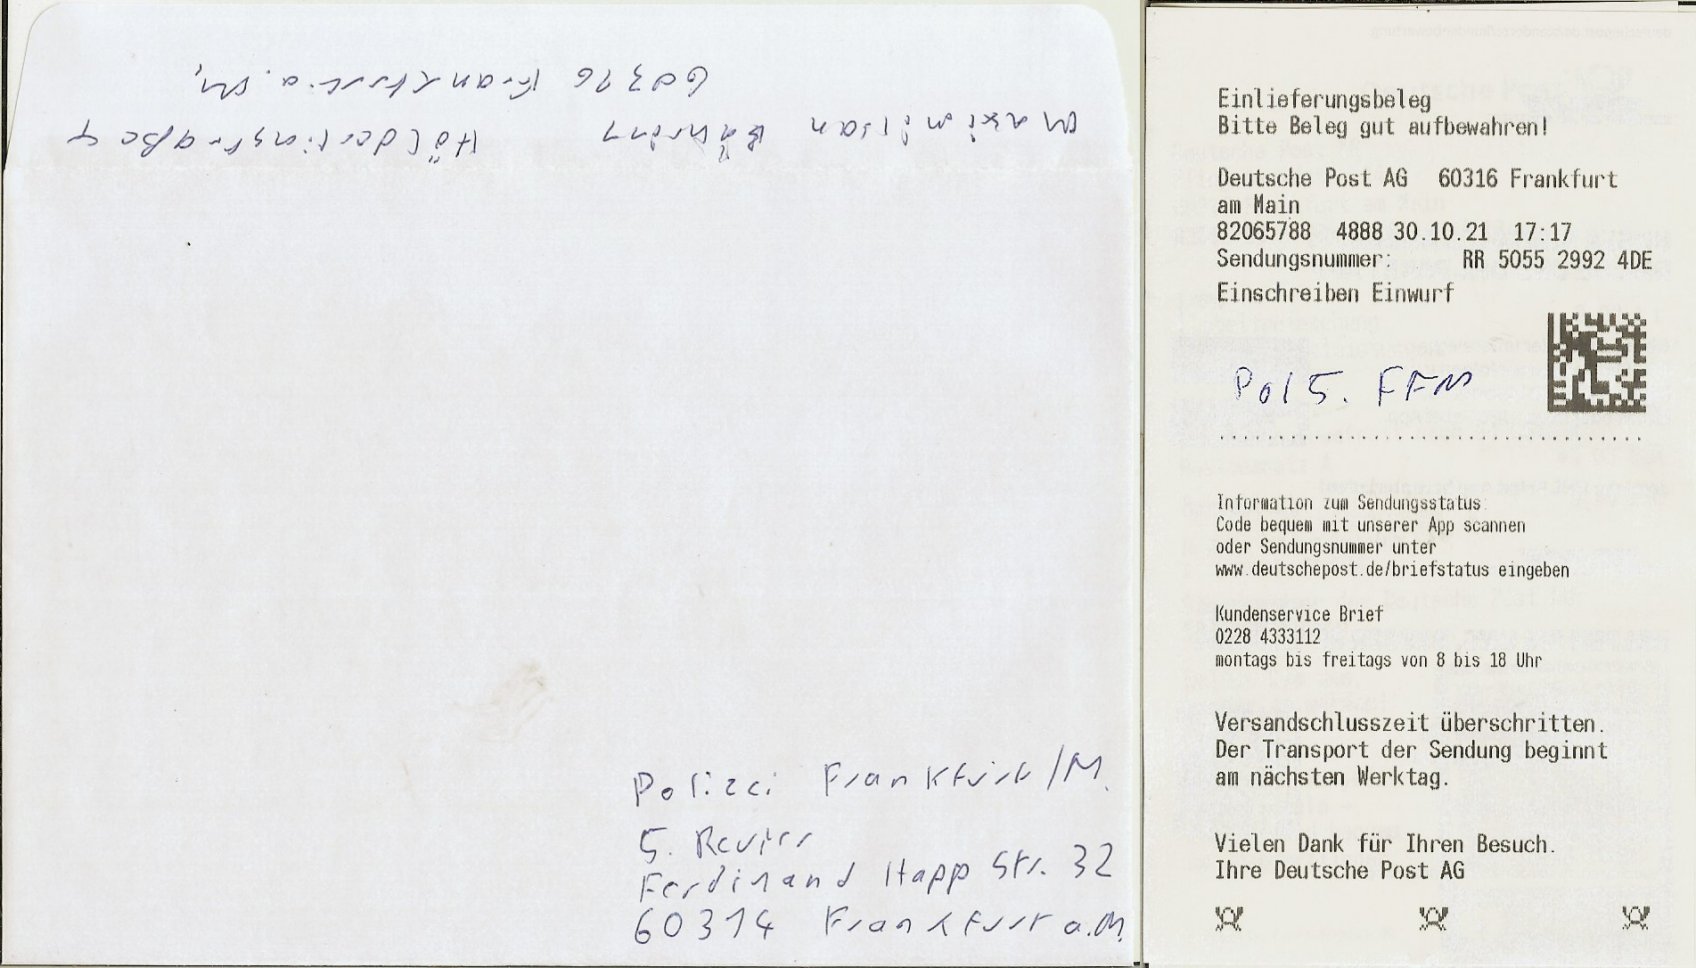 Maximilian Bähring Hölderlinstraße 4
60316 Frankfurt a. M.
Polizei Frankfurt/M.
5. Revier
Ferdinand Happ Str. 32
60314 Frankfurt a.M.
Einlieferungsbeleg
Bitte Beleg gut aufbewahren!
Deutsche Post AG 60316 Frankfurt
am Main
82065788 4888 30.10.21 17:17
Sendungsnummer: RR 5055 2992 4DE
Einschreiben Einwurf
Pol 5. FFM
Information zum Sendungsstatus:
Code bequem mit unserer App scannen
oder Sendungsnummer unter
www.deutschepost.de/briefstatus eingeben
Kundenservice Brief
0228 4333112
montags bis freitags von 8 bis 18 Uhr
Versandschlusszeit überschritten.
Der Transport der Sendung beginnt
am nächsten Werktag.
Vielen Dank für Ihren Besuch.
Ihre Deutsche Post AG